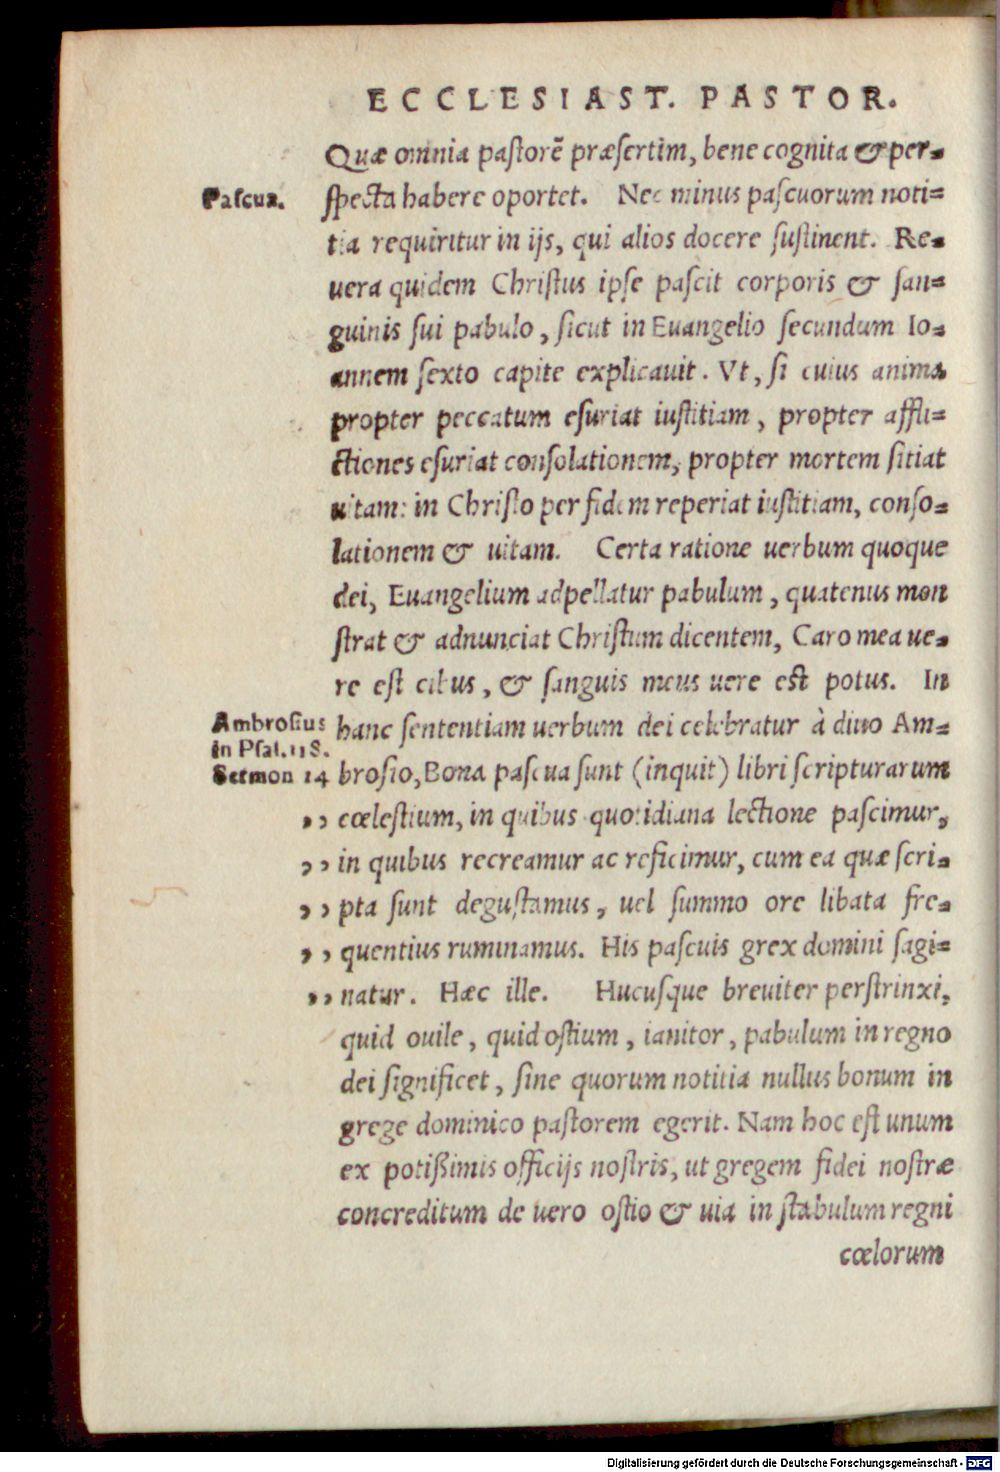 ECCLESIAST. PASTOR.
Quæ omnia pastorẽ præsertim, bene cognita & per-
Pascua.
specta habere oportet. Nec minus pascuorum noti-
tia requiritur in ijs, qui alios docere sustinent. Re-
uera quidem Christus ipse pascit corporis & san-
guinis sui pabulo, sicut in Euangelio secundum Io-
annem sexto capite explicauit. Vt, si cuius anima
propter peccatum esuriat iustitiam, propter affli-
ctiones esuriat consolationem, propter mortem sitiat
uitam: in Christo per fidem reperiat iustitiam, conso-
lationem & uitam. Certa ratione uerbum quoque
dei, Euangelium adpellatur pabulum, quatenus mon
strat & adnunciat Christum dicentem, Caro mea ue-
re est cibus, & sanguis meus uere est potus. In
Ambrosius
in Psal. 118.
Sermon 14
hanc sententiam uerbum dei celebratur à diuo Am-
brosio, Bona pascua sunt (inquit) libri scripturarum
,, cœlestium, in quibus quotidiana lectione pascimur,
,, in quibus recreamur ac reficimur, cum ea quæ scri-
,, pta sunt degustamus, uel summo ore libata fre-
,, quentius ruminamus. His pascuis grex domini sagi-
,, natur. Hæc ille. Hucusque breuiter perstrinxi,
quid ouile, quid ostium, ianitor, pabulum in regno
dei significet, sine quorum notitia nullus bonum in
grege dominico pastorem egerit. Nam hoc est unum
ex potißimis officijs nostris, ut gregem fidei nostræ
concreditum de uero ostio & uia in stabulum regni
cœlorum
Digitalisierung gefördert durch die Deutsche Forschungsgemeinschaft - DFG